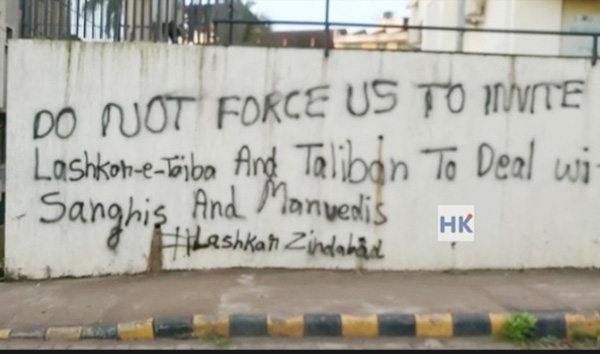 DO NOT FORCE US TO INVITE
Lashkar-e-Taiba And Taliban To Deal wi
Sanghis And Manvedis
#Lashkar Zindabad
HK